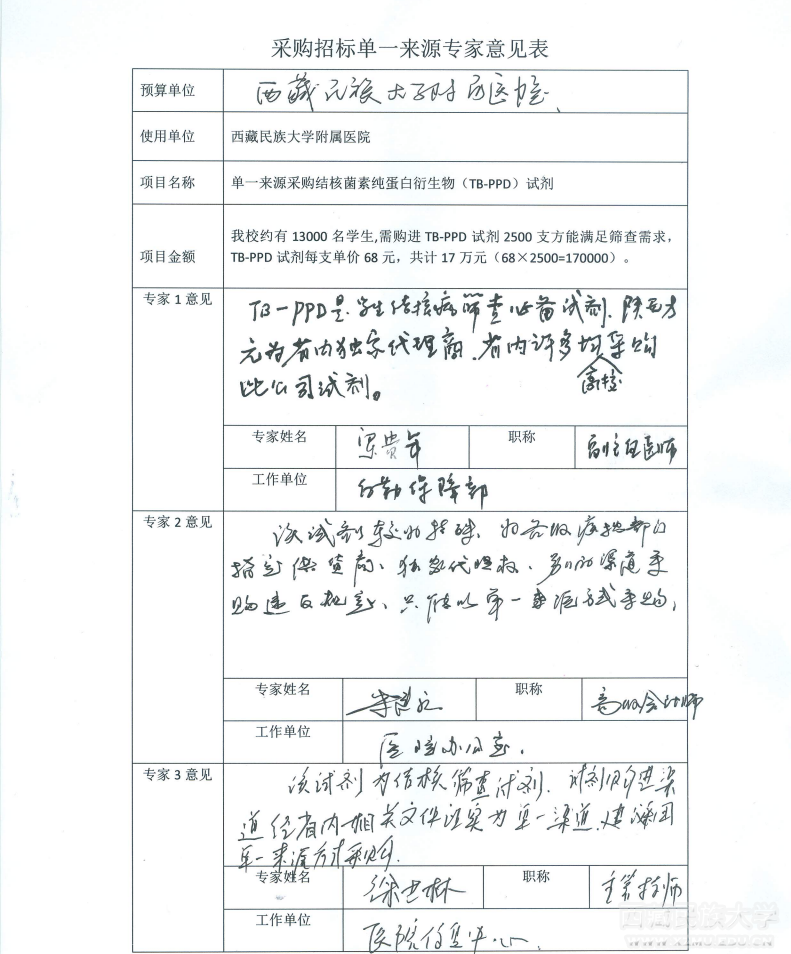 采购招标单一来源专家意见表
预算单位 西藏民族大学附属医院
使用单位 西藏民族大学附属医院
项目名称 单一来源采购结核菌素纯蛋白衍生物（TB-PPD）试剂
项目金额 我校约有 13000 名学生,需购进 TB-PPD 试剂 2500 支方能满足筛查需求，
TB-PPD 试剂每支单价 68 元，共计 17 万元（68×2500=170000）。
专家 1 意见 TB-PPD是学生结核病筛查必备试剂、陕西方
元为省内独家代理商，省内许多高校均采购
此公司试剂。
专家姓名 梁贵年 职称 副主任医师
工作单位 后勤保障部
专家 2 意见 该试剂较为特殊，为各级疾控部门
指定供货商、独家代理权、别的渠道采
购违反规定、只能以单一来源方式采购，
专家姓名 职称 高级会计师
工作单位 医院办公室，
专家 3 意见 该试剂为结核筛查试剂，试剂购进渠
道经省内相关文件证实为单一渠道，建议用
单一来源方式采购
专家姓名 徐世林 职称 主管技师
工作单位 医院体检中心、
西藏民族大学
WWW.XZMU.EDU.CN